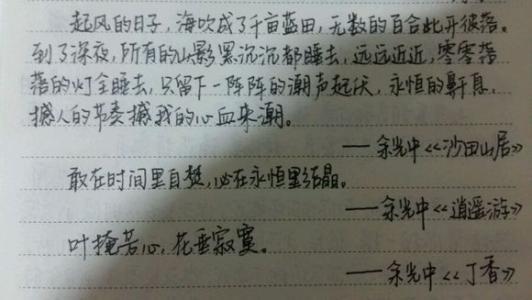 起风的日子，海吹成了千亩蓝田，无数的百合此开彼落。
到了深夜，所有的山影黑沉沉都睡去，远远近近，零零落
落的灯全睡去，只留下一阵阵的潮声起伏，永恒的鼾息，
撼人的节奏撼我的心血来潮。
——余光中《沙田山居》
敢在时间里自焚，必在永恒里结晶。
——余光中《逍遥游》
叶掩苦心，花垂寂寞。
——余光中《丁香》